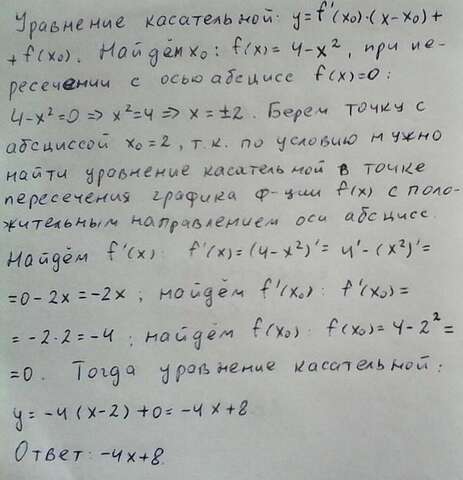 Уравнение касательной: y=f'(x₀)·(x-x₀)+
+f(x₀). Найдём x₀: f(x)=4-x², при пе-
ресечении с осью абсцисс f(x)=0:
4-x²=0 => x²=4 => x=±2. Берем точку с
абсциссой x₀=2, т.к. по условию нужно
найти уравнение касательной в точке
пересечения графика ф-ции f(x) с поло-
жительным направлением оси абсцисс.
Найдём f'(x): f'(x)=(4-x²)'=4'-(x²)'=
=0-2x=-2x; найдём f'(x₀): f'(x₀)=
=-2·2=-4; найдём f(x₀): f(x₀)=4-2²=
=0. Тогда уравнение касательной:
y=-4(x-2)+0=-4x+8.
Ответ: -4x+8.